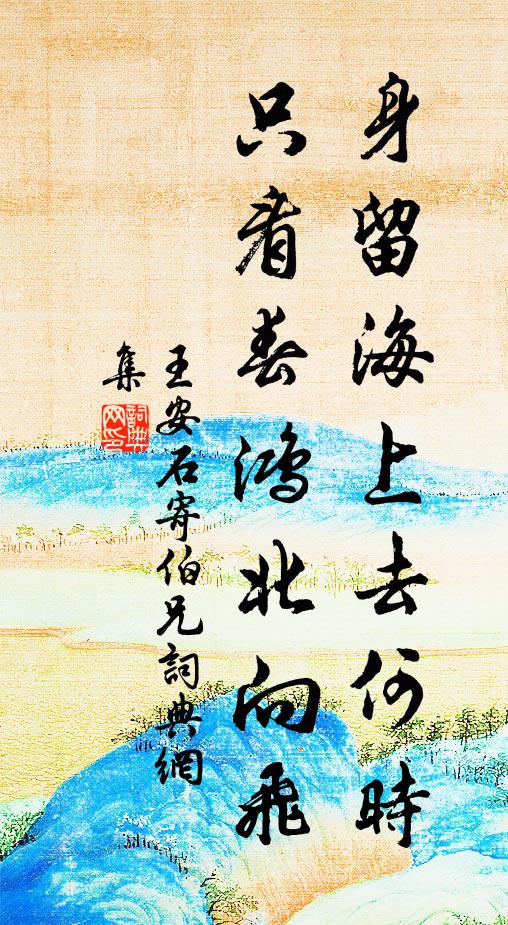 身留海上去何時
只看春鴻北向飛
王安石寄伯兄詞典網
集
詞典
网印